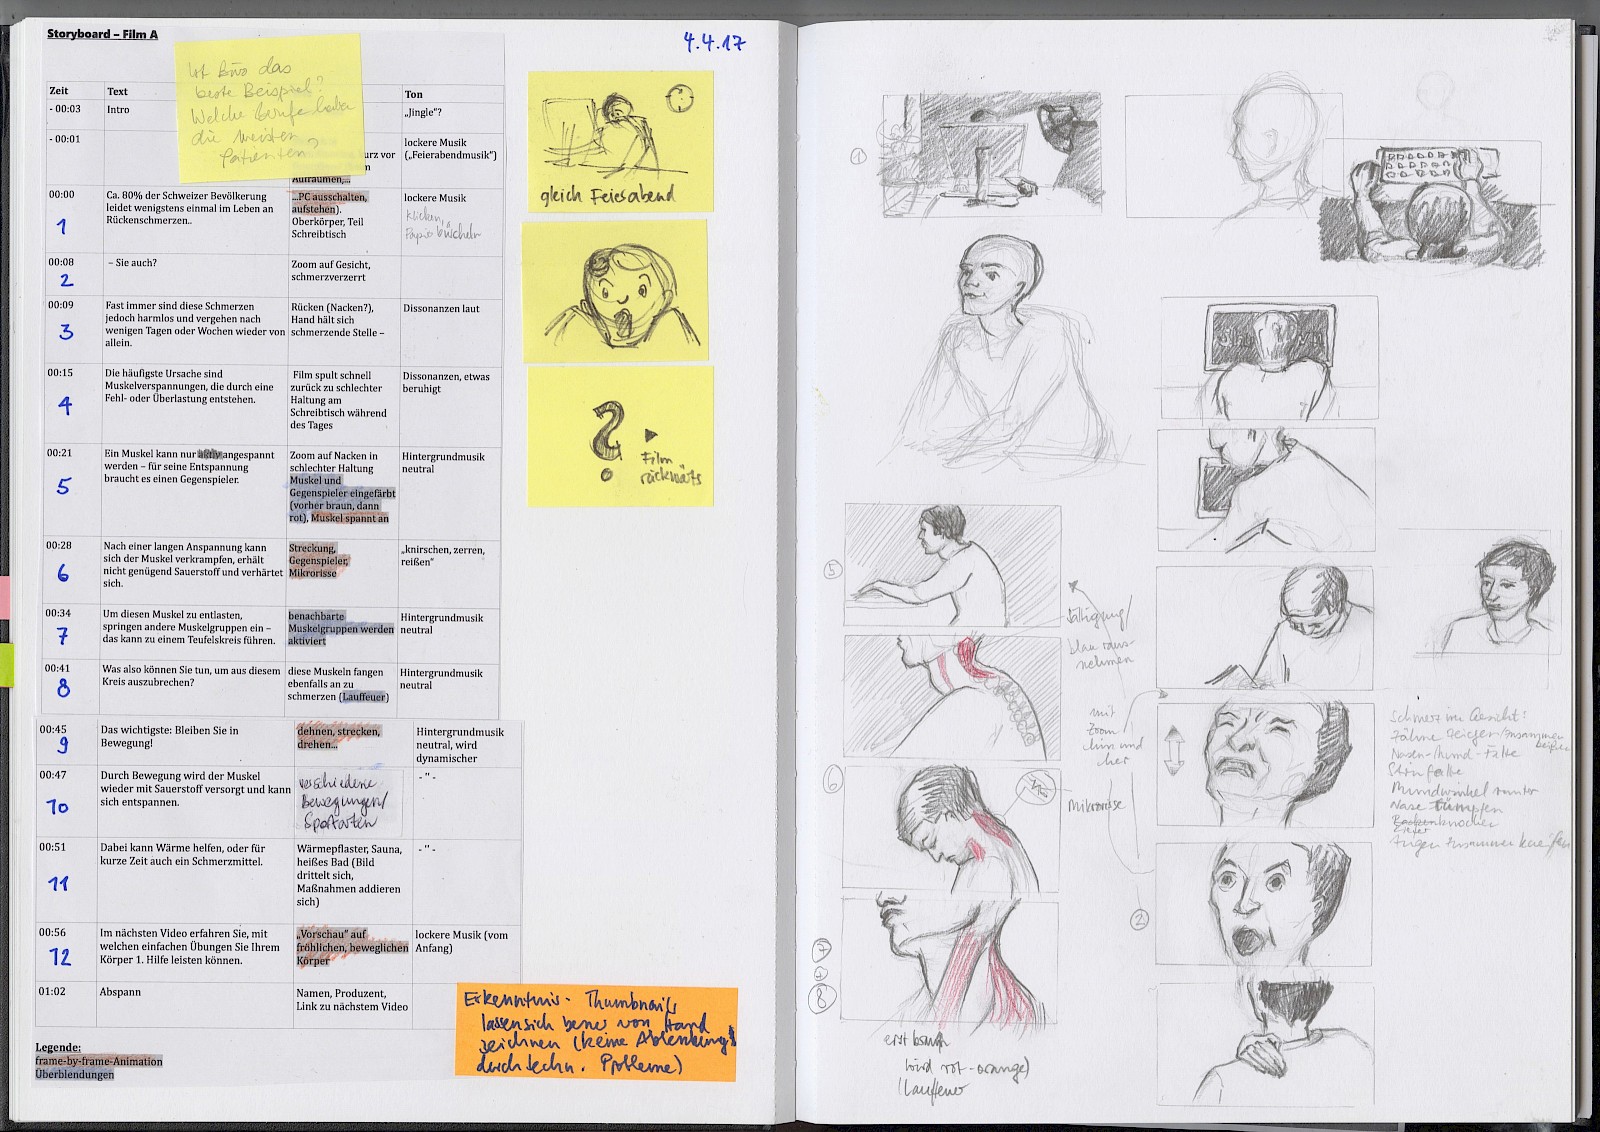 Storyboard – Film A
4.4.17
Ist Büro das
beste Beispiel?
Welche Berufe haben
die meisten
Patienten?
Zeit
Text
Ton
- 00:03
Intro
„Jingle“?
- 00:01
kurz vor
Aufräumen,...
lockere Musik
(„Feierabendmusik“)
00:00
1
Ca. 80% der Schweizer Bevölkerung
leidet wenigstens einmal im Leben an
Rückenschmerzen..
...PC ausschalten,
aufstehen).
Oberkörper, Teil
Schreibtisch
lockere Musik
klicken,
Papier büscheln
00:08
2
– Sie auch?
Zoom auf Gesicht,
schmerzverzerrt
00:09
3
Fast immer sind diese Schmerzen
jedoch harmlos und vergehen nach
wenigen Tagen oder Wochen wieder von
allein.
Rücken (Nacken?),
Hand hält sich
schmerzende Stelle –
Dissonanzen laut
00:15
4
Die häufigste Ursache sind
Muskelverspannungen, die durch eine
Fehl- oder Überlastung entstehen.
Film spult schnell
zurück zu schlechter
Haltung am
Schreibtisch während
des Tages
Dissonanzen, etwas
beruhigt
00:21
5
Ein Muskel kann nur aktiv angespannt
werden – für seine Entspannung
braucht es einen Gegenspieler.
Zoom auf Nacken in
schlechter Haltung
Muskel und
Gegenspieler eingefärbt
(vorher braun, dann
rot), Muskel spannt an
Hintergrundmusik
neutral
00:28
6
Nach einer langen Anspannung kann
sich der Muskel verkrampfen, erhält
nicht genügend Sauerstoff und verhärtet
sich.
Streckung,
Gegenspieler,
Mikrorisse
„knirschen, zerren,
reißen“
00:34
7
Um diesen Muskel zu entlasten,
springen andere Muskelgruppen ein –
das kann zu einem Teufelskreis führen.
benachbarte
Muskelgruppen werden
aktiviert
Hintergrundmusik
neutral
00:41
8
Was also können Sie tun, um aus diesem
Kreis auszubrechen?
diese Muskeln fangen
ebenfalls an zu
schmerzen (Lauffeuer)
Hintergrundmusik
neutral
00:45
9
Das wichtigste: Bleiben Sie in
Bewegung!
dehnen, strecken,
drehen...
Hintergrundmusik
neutral, wird
dynamischer
00:47
10
Durch Bewegung wird der Muskel
wieder mit Sauerstoff versorgt und kann
sich entspannen.
verschiedene
Bewegungen/
Sportarten
- " -
00:51
11
Dabei kann Wärme helfen, oder für
kurze Zeit auch ein Schmerzmittel.
Wärmepflaster, Sauna,
heißes Bad (Bild
drittelt sich,
Maßnahmen addieren
sich)
- " -
00:56
12
Im nächsten Video erfahren Sie, mit
welchen einfachen Übungen Sie Ihrem
Körper 1. Hilfe leisten können.
„Vorschau“ auf
fröhlichen, beweglichen
Körper
lockere Musik (vom
Anfang)
01:02
Abspann
Namen, Produzent,
Link zu nächstem Video
Legende:
frame-by-frame-Animation
Überblendungen
gleich Feierabend
?
Film
rückwärts
Erkenntnis - Thumbnails
lassen sich besser von Hand
zeichnen (keine Ablenkung
durch techn. Probleme)
1
5
Sättigung/
blau raus-
nehmen
mit
Zoom
hin und
her
6
Mikrorisse
7
+
8
erst braun
wird rot-orange)
(Lauffeuer
2
Schmerz im Gesicht:
Zähne zeigen/zusammen
beißen
Nasen-Mund-Falte
Stirnfalte
Mundwinkel runter
Nase rümpfen
Augen zusammenkneifen